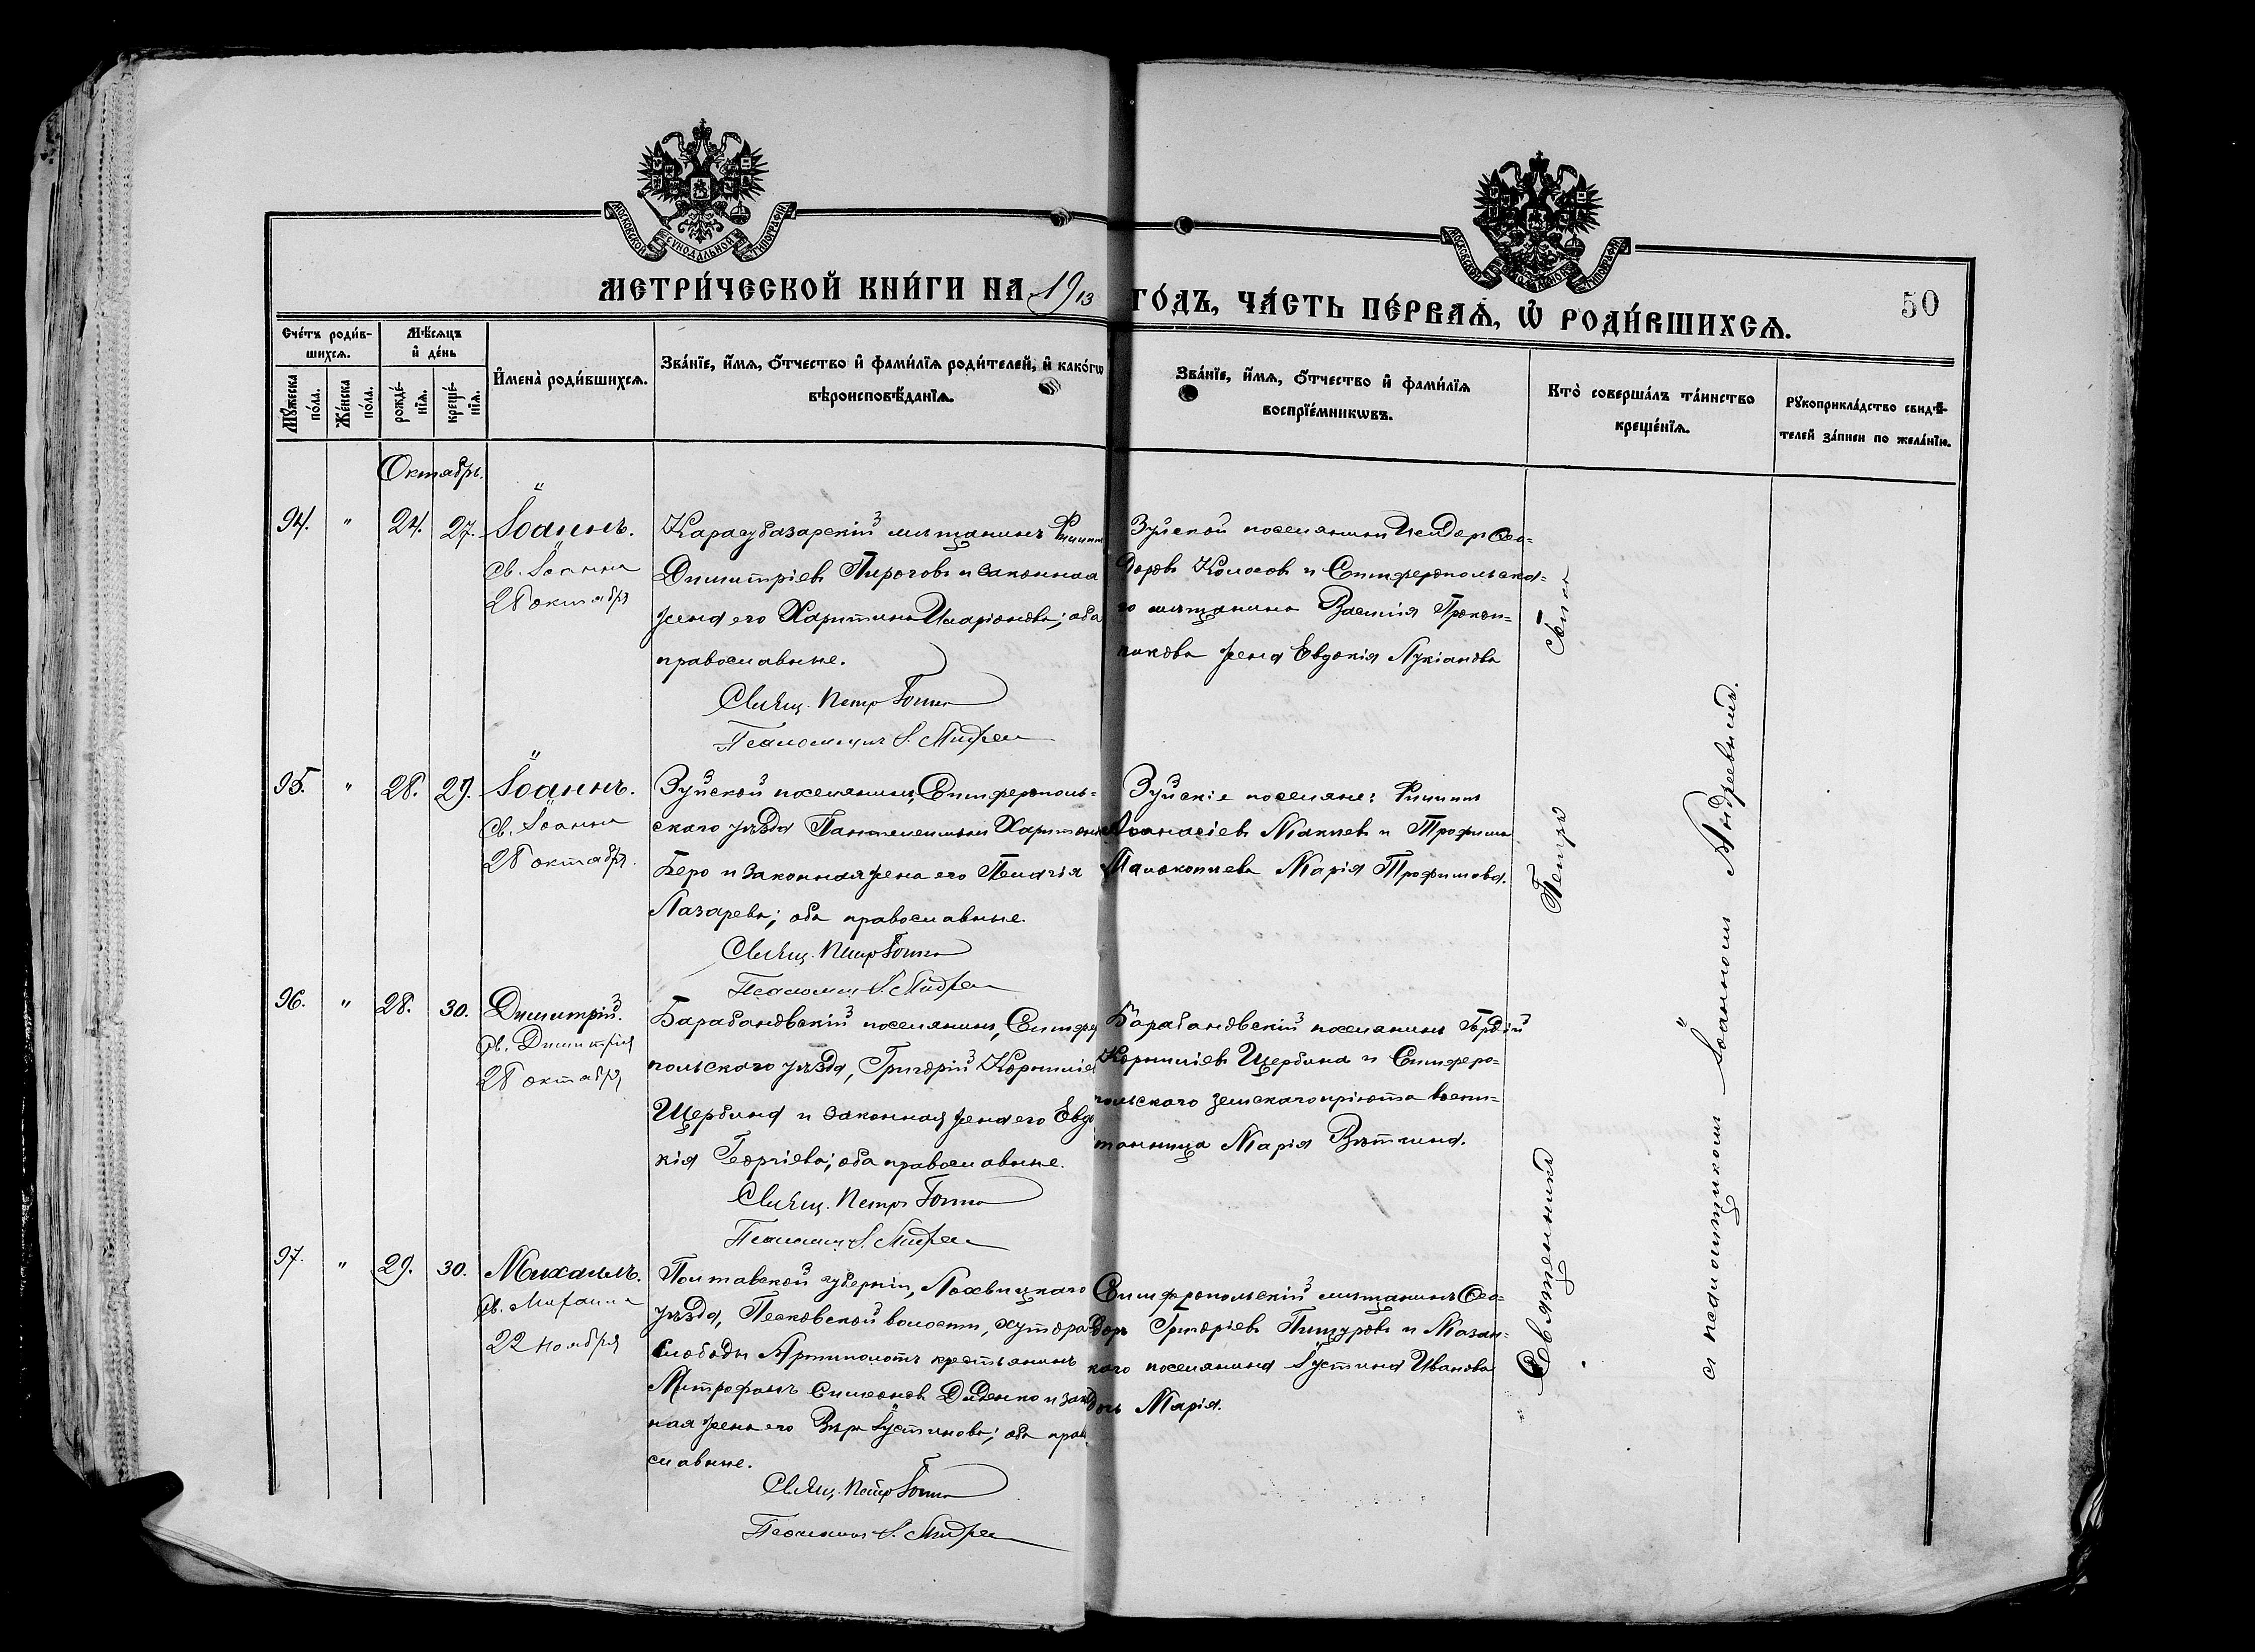 МОСКОВСКОЙ СУНОДАЛЬНОЙ ТИПОГРАФІИ
МОСКОВСКОЙ ТИПОГРАФІИ
МЕТРИ́ЧЕСКОЙ КНИ́ГИ НА 1913
ГО́ДЪ, ЧА́СТЬ ПЕ́РВАѦ, Ѡ҆ РОДИ́ВШИХСѦ.
50
Сче́тъ роди́в-
шихсѧ.
Мꙋ́жеска
по́ла.
Же́нска
по́ла.
Мѣ́сѧцъ
и҆ де́нь
рожде́-
нїѧ.
креще́-
нїѧ.
И҆мена̀ роди́вшихсѧ.
Зва́нїе, и҆́мѧ, ѻ҆́тчество и҆ фами́лїѧ роди́телей, и҆ како́гѡ
вѣроисповѣ́данїѧ.
Зва́нїе, и҆́мѧ, ѻ҆́тчество и҆ фами́лїѧ
воспрїе́мникѡвъ.
Кто̀ соверша́лъ та́инство
креще́нїѧ.
Рꙋкоприкла́дство свидѣ́-
телей за́писи по жела́нїю.
Октябрь.
94.
"
24.
27.
Іоаннъ.
Св. Іоанна
28 октября
Карасубазарскій мѣщанинъ Филипп
Димитріевъ Пироговъ и законная
жена его Харитина Иларіонова; оба
православные.
Священ. Петръ
Псаломщикъ І.
Зуйской поселянинъ Ѳео-
доровъ Колосовъ и Симферопольска-
го мѣщанина Василія Прокоп-
жена Евдокія Лукіанова
95.
"
28.
29.
Іоаннъ.
Св. Іоанна
28 октября.
Зуйской поселянинъ, Симферополь-
скаго уѣзда Пантелеимонъ Харитонов
Беро и законная жена его Пелагія
Лазарева; оба православные.
Священ. Петръ
Псаломщ. І.
Зуйскіе поселяне: Филиппъ
Аѳанасіевъ Макиевъ и Трофима
Марія Трофимова.
96.
"
28.
30.
Димитрій.
Св. Димитрія
28 октября
Барабановскій поселянинъ, Симферо
польскаго уѣзда, Григорій Корнилiев
Щербина и законная жена его Евдо
кія Георгіева; оба православные.
Священ. Петръ
Псаломщ. І.
Барабановскій поселянинъ Гордій
Корниліевъ Щербина и Симферо-
польскаго земскаго пріюта воспи-
танница Марія Вѣткина.
97.
"
29.
30.
Михаилъ.
Св. Михаила
22 ноября
Полтавской губерніи, Лохвицкаго
уѣзда, Песковской волости, хутора
слободы Артополотъ крестьянинъ
Митрофанъ Симеоновъ Диденко и закон
ная жена его Вѣра Іустинова; оба право
славные.
Священ. Петръ
Псаломщ. І.
Симферопольскій мѣщанинъ Ѳео-
доръ Григоріевъ Пищуровъ и Мазан-
каго поселянина Іустина Иванова
дочь Марія.
Священникъ Петръ
съ псаломщикомъ Іоанномъ Андреевымъ.